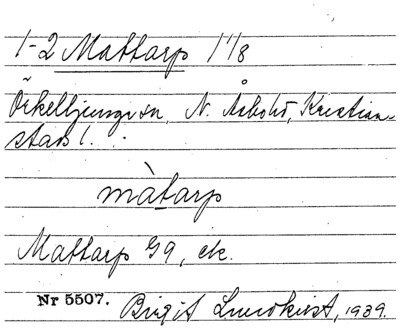 1-2 Mattarp 1 1/8
Örkelljunga sn, N. Åsbo hd, Kristian-
stads l.
màtarp
Mattarp G9, ek.
Nr 5507. Birgit Lundkvist, 1939.